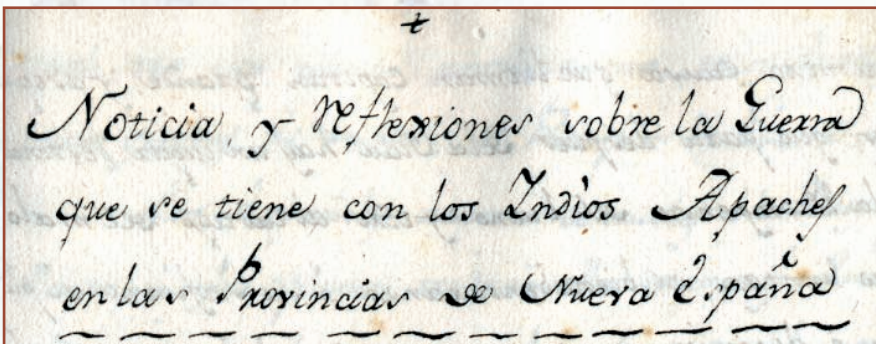 +
Noticia, y reflexiones sobre la Guerra
que se tiene con los Indios Apaches
en las Provincias de Nueva España